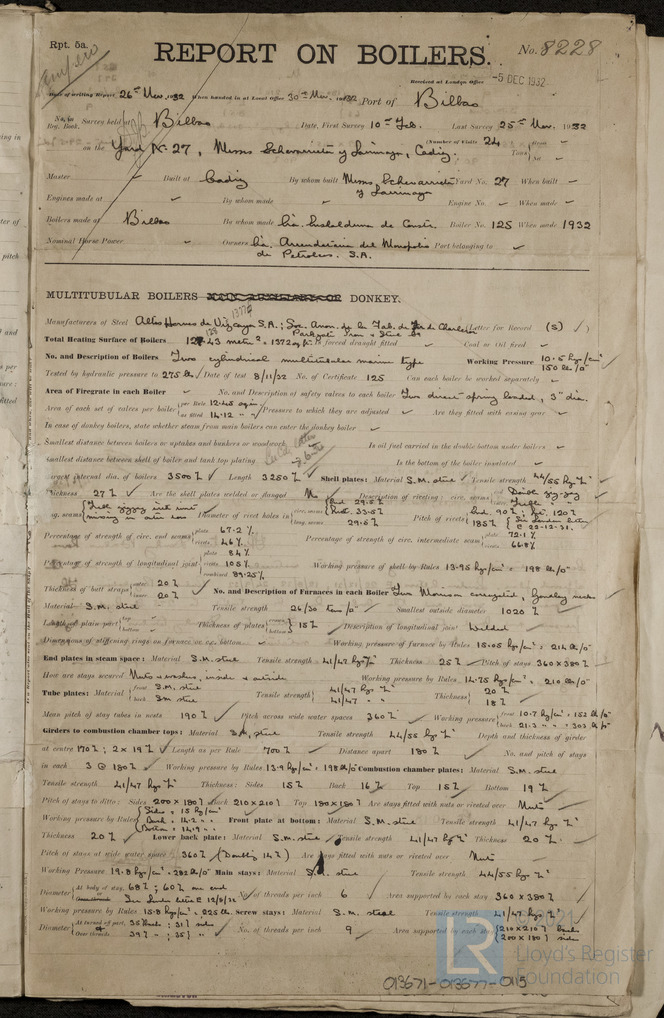 Rpt. 5a.
REPORT ON BOILERS.
No. 8228
Received at London Office -5 DEC 1932
Date of writing Report 26th Nov. 1932 When handed in at Local Office 30th Nov. 1932 Port of Bilbao
No. in Reg. Book. Survey held at Bilbao Date, First Survey 10th Feb. Last Survey 25th Nov. 1932
on the Yard No 27, Messrs Echevarrieta y Larrinaga, Cadiz. (Number of Visits 24 Tons
Master Built at Cadiz By whom built Messrs Echevarrieta y Larrinaga Yard No. 27 When built
Engines made at By whom made Engine No. When made
Boilers made at Bilbao By whom made Cia. Euskalduna de Constr. Boiler No. 125 When made 1932
Nominal Horse Power Owners Cia. Arrendataria del Monopolio de Petroleos. S.A. Port belonging to
MULTITUBULAR BOILERS MAIN, AUXILIARY OR DONKEY.
Manufacturers of Steel Altos Hornos de Vizcaya S.A.; (Letter for Record (S) )
Total Heating Surface of Boilers Is forced draught fitted Coal or Oil fired
No. and Description of Boilers Two cylindrical multitubular marine type Working Pressure 10.5 kg/cm² 150 lb/□"
Tested by hydraulic pressure to 275 lb. Date of test 8/11/32 No. of Certificate 125 Can each boiler be worked separately
Area of Firegrate in each Boiler No. and Description of safety valves to each boiler Two direct spring loaded, 3" dia.
Area of each set of valves per boiler {per Rule as fitted 14.12 Pressure to which they are adjusted Are they fitted with easing gear
In case of donkey boilers, state whether steam from main boilers can enter the donkey boiler
Smallest distance between boilers or uptakes and bunkers or woodwork Is oil fuel carried in the double bottom under boilers
Smallest distance between shell of boiler and tank top plating Is the bottom of the boiler insulated
Largest internal dia. of boilers 3500 Length 3250 Shell plates: Material S.M. steel Tensile strength 44/55 kg.
Thickness 27 Are the shell plates welded or flanged No Description of riveting: circ. seams {end Double zig-zag
long. seams Diameter of rivet holes in {circ. seams long. seams 29.5 Pitch of rivets
Percentage of strength of circ. end seams {plate 67.2 % rivets 46 % Percentage of strength of circ. intermediate seam {plate 72.1 % rivets 66.8 %
Percentage of strength of longitudinal joint {plate 84 % rivets 105 % combined 89.25 % Working pressure of shell by Rules 13.95 kg/cm² = 198 lb/□"
Thickness of butt straps {outer 20 inner 20 No. and Description of Furnaces in each Boiler Two Morison corrugated, Gourlay necks
Material S.M. steel Tensile strength 26/30 tons/□" Smallest outside diameter 1020
Length of plain part {top bottom Thickness of plates {crown bottom 15 Description of longitudinal joint Welded
Dimensions of stiffening rings on furnace or c.c. bottom Working pressure of furnace by Rules 15.05 kg/cm² = 214 lb/□"
End plates in steam space: Material S.M. steel Tensile strength 41/47 kg Thickness 25 Pitch of stays 360 x 380
How are stays secured Nuts & washers, inside & outside Working pressure by Rules 14.75 kg/cm² = 210 lb/□"
Tube plates: Material {front S.M. steel back S.M. steel Tensile strength {41/47 kg 41/47 Thickness {20 18
Mean pitch of stay tubes in nests 190 Pitch across wide water spaces 360 Working pressure {front 10.7 kg/cm² = 152 lb/□" back 21.3 = 303 lb/□"
Girders to combustion chamber tops: Material S.M. steel Tensile strength 44/55 kg Depth and thickness of girder
at centre 170; 2 x 19 Length as per Rule 700 Distance apart 180 No. and pitch of stays
in each 3 @ 180 Working pressure by Rules 13.9 kg/cm² = 198 lb/□" Combustion chamber plates: Material S.M. steel
Tensile strength 41/47 kg Thickness: Sides 15 Back 16 Top 15 Bottom 19
Pitch of stays to ditto: Sides 200 x 180 Back 210 x 210 Top 180 x 180 Are stays fitted with nuts or riveted over Nuts
Working pressure by Rules {Sides 15 kg/cm² Back 14.2 Bottom 14.9 Front plate at bottom: Material S.M. steel Tensile strength 41/47 kg
Thickness 20 Lower back plate: Material S.M. steel Tensile strength 41/47 kg Thickness 20
Pitch of stays at wide water space 360 (Doubling 14) Are stays fitted with nuts or riveted over Nuts
Working Pressure 19.8 kg/cm² = 282 lb/□" Main stays: Material S.M. steel Tensile strength 44/55 kg
Diameter {At body of stay, 68; 60 one end Over threads See London letter E 12/8/32 No. of threads per inch 6 Area supported by each stay 360 x 380
Working pressure by Rules 15.8 kg/cm² = 225 lb. Screw stays: Material S.M. steel Tensile strength 41/47 kg
Diameter {At turned off part, 35 back; 31 sides Over threads 39; 35 No. of threads per inch 9 Area supported by each stay {210 x 210 back 200 x 180 sides
LR
Lloyd's Register
Foundation
013671-013677-0115